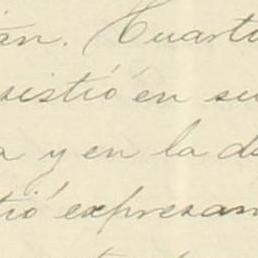 án. Cuarto
sistió en su
a y en la d
tió expresan